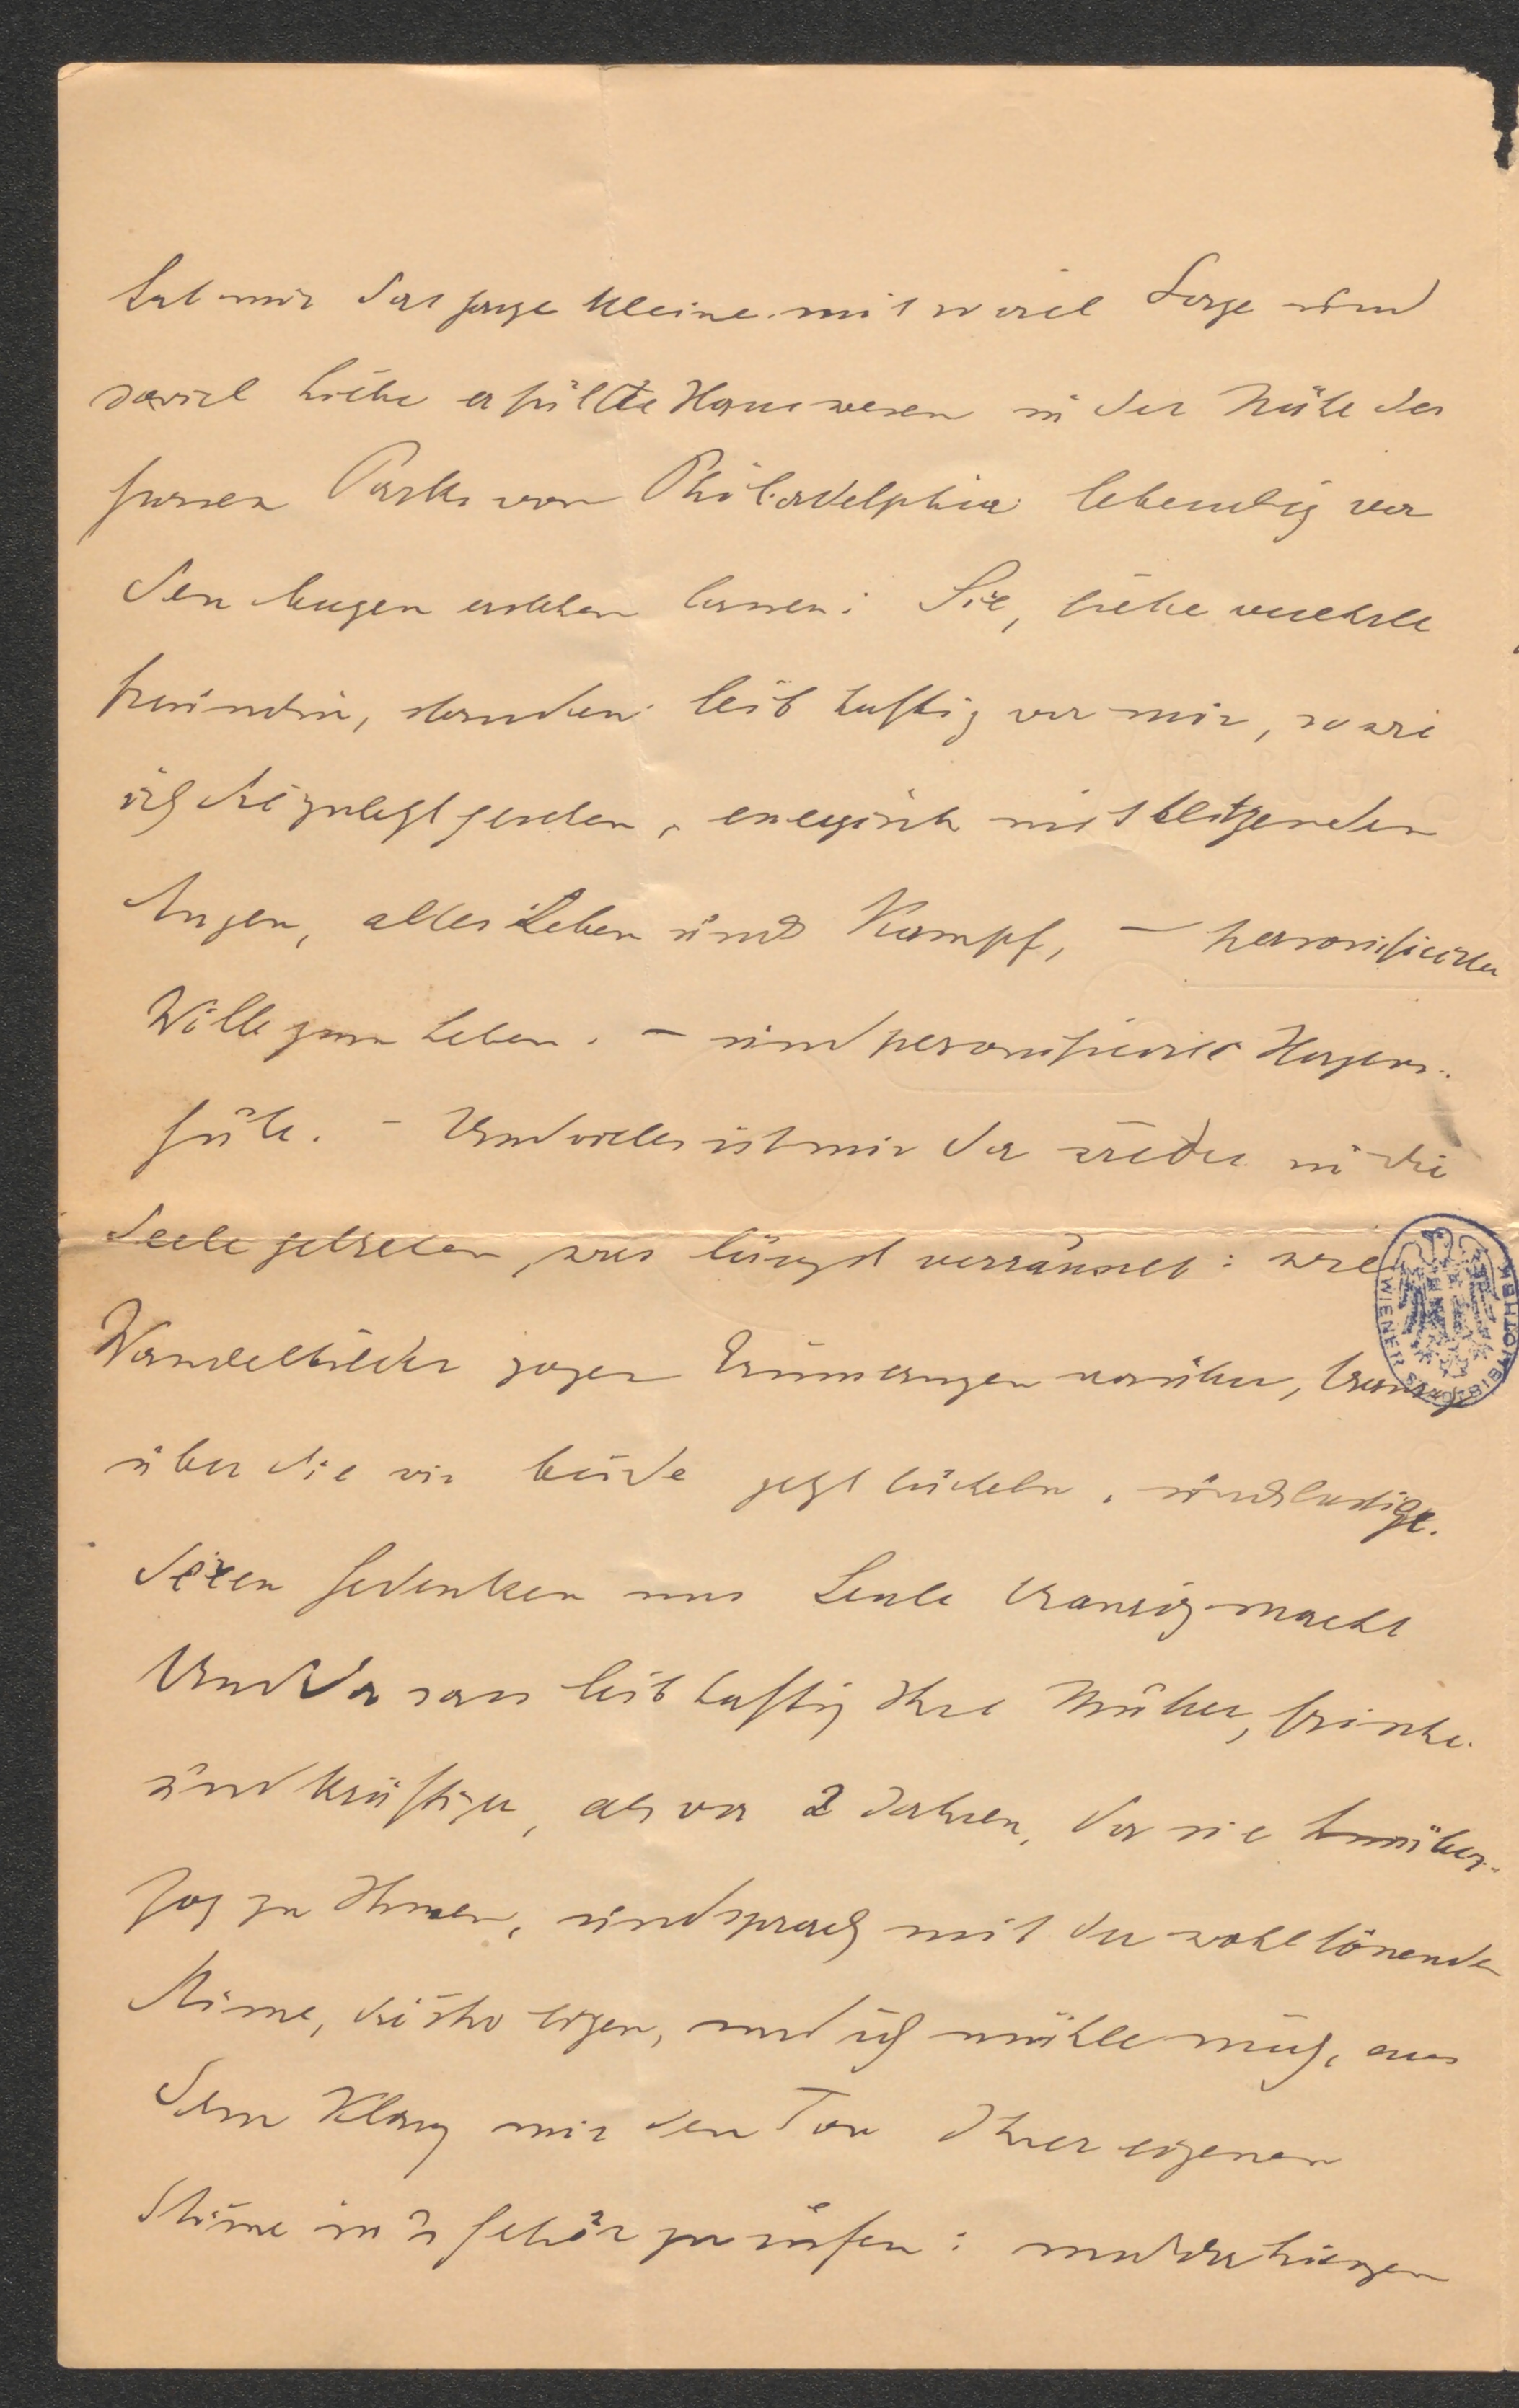 hat mir das ganze kleine mit soviel Sorge und
soviel Liebe erfüllte Hauswesen in der Nähe des
grossen Parks von Philadelphia lebendig vor
den Augen erstehen lassen: Sie, liebe verehrte
Freundin, standen leibhaftig vor mir, so wie
ich Sie zuletzt gesehen, energisch mit blitzenden
Augen, alles Leben und Kampf, – personificirter
Wille zum Leben. – und personificirte Herzens-
güte. – Und vieles ist mir da wieder in die
Seele getreten, was längst verräumt: wie
Wandelbilder zogen Erinnerungen vorüber, traurige
über die wir beide jetzt lächeln, und lustige.
deren Gedenken uns heute traurig macht
Und da sass leibhaftig Ihre Mutter, frischer
und kräftiger, als vor 2 Jahren, da sie hinüber-
zog zu Ihnen, und sprach mit der wohltönenden
Stime, die ihr eigen, und ich mühte mich, aus
dem Klang mir den Ton Ihrer eigenen
Stime in's Gehör zu rufen: und da hiengen
WIENER STADTBIBLIOTHEK